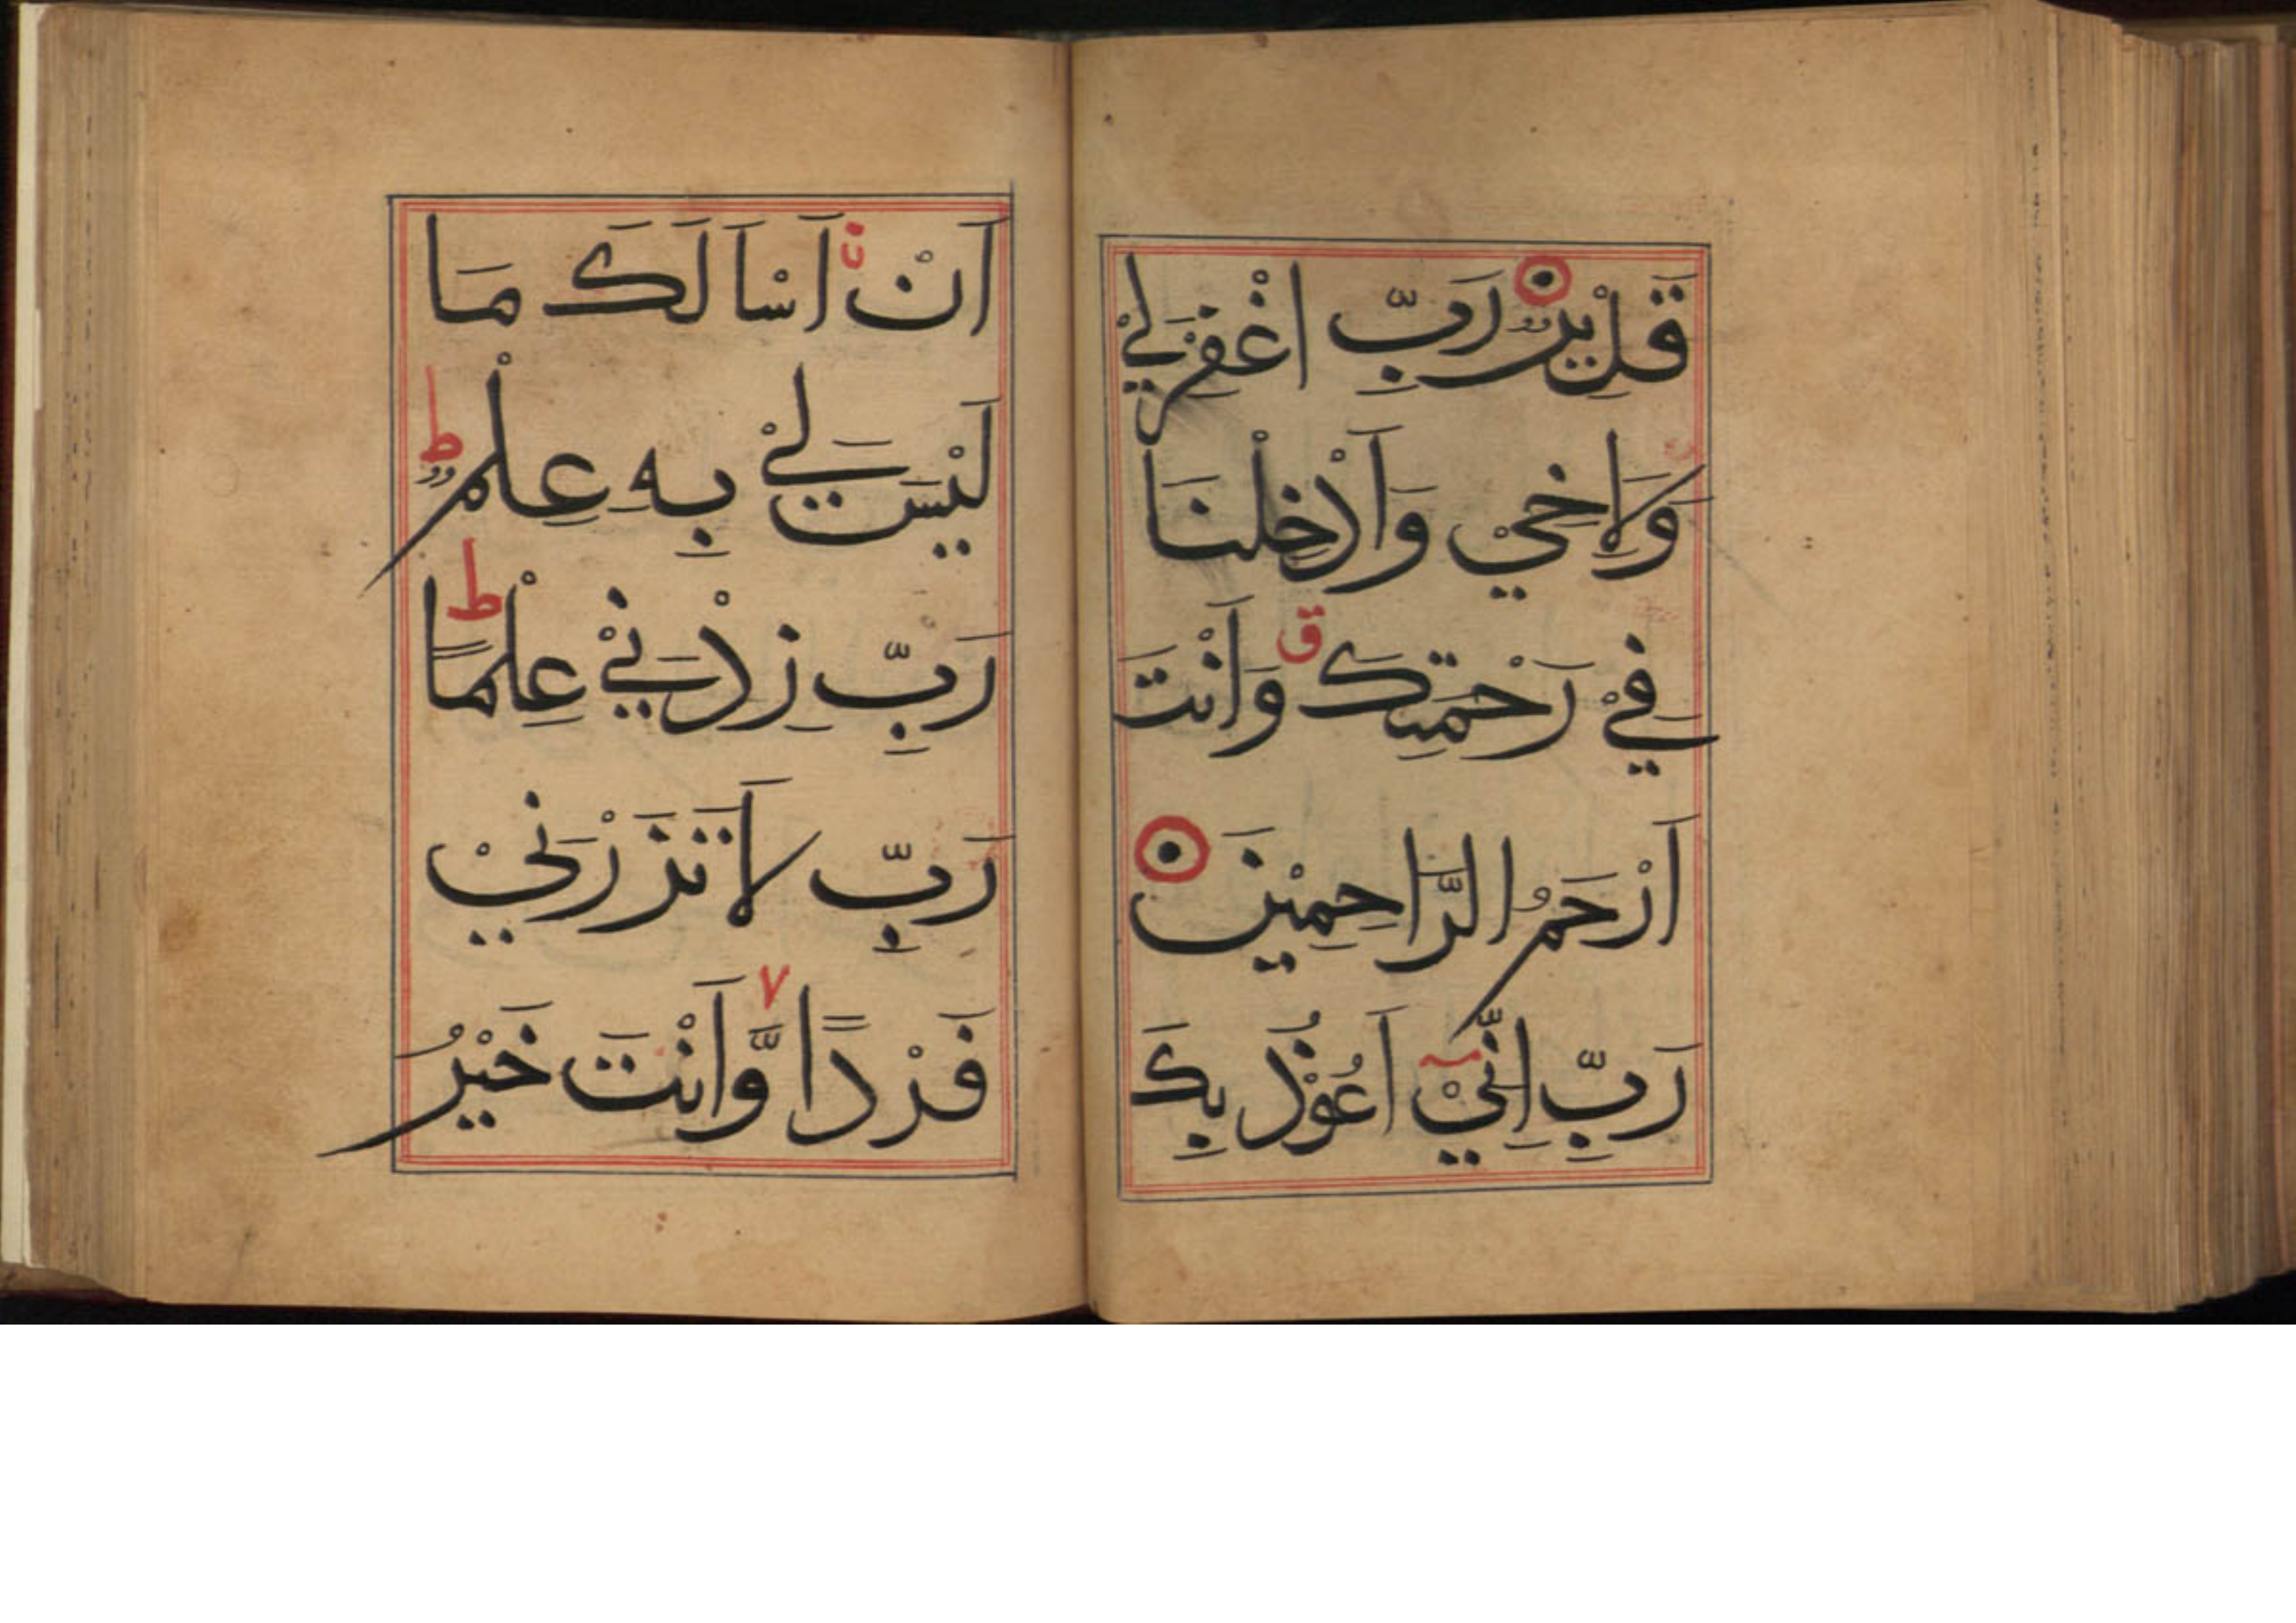 قَلِيْرٌ رَبِّ اغْفِرْلِيْ
وَلِاَخِيْ وَاَدْخِلْنَا
فِيْ رَحْمَتِكَ ق وَاَنْتَ
اَرْحَمُ الرَّاحِمِيْنَ
رَبِّ اِنِّيْ اَعُوْذُ بِكَ
اَنْ اَسْاَلَكَ مَا
لَيْسَ لِيْ بِهٖ عِلْمٌ ط
رَبِّ زِدْنِيْ عِلْمًا ط
رَبِّ لَا تَذَرْنِيْ
فَرْدًا وَّاَنْتَ خَيْرُ